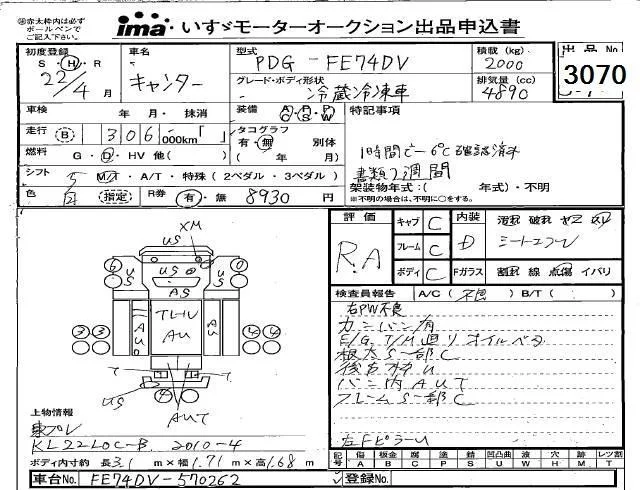 ㊟赤太枠内は必ず
ボールペンで
ご記入下さい。
ima いすゞモーターオークション出品申込書
初度登録
S・H・R
22/4 月
車名
キャンター
型式
PDG-FE74DV
グレード・ボディ形状
冷蔵冷凍車
積載 (kg)
2000
排気量 (cc)
4890
出品 No
3070
車検 年 月・ 抹消
走行 B 306 000km「 」
燃料 G・D・HV 他( )
シフト 5 M/T・A/T・特殊 (2ペダル・3ペダル)
色 白 指定 R券 有・無 8930 円
装備 A/C P/S P/W
タコグラフ
有・無 別体
( 年 月)
特記事項
1時間で-6℃確認済み
書類2週間
架装物年式:( 年式)・不明
※不明の場合は、不明に○をする。
XM
US
6 US US 0
US
AS
3 3 AU TLHV AU AU 4 4
T T
US 4
AUT
評価
R.A
キャブ C
フレーム C
ボディ C
内装
D
Fガラス
汚れ 破れ ヤニ
割れ 線 点傷 イバリ
検査員報告 A/C( 不良 ) B/T( )
右PW不良
カンバン有
E/G T/M廻りオイルベタ
根太S一部C
後右枠U
バン内AUT
フレームS一部C
左FピラーU
上物情報
東プレ
KL22LOC-B 2010-4
ボディ内寸約 長3.1 m×幅1.71 m×高1.68 m
記号 傷A 板金B 腐C 塗P 錆S 凹凸曲U 波W 穴H 跡M レツ割T
車台No. FE74DV-570262
登録No.